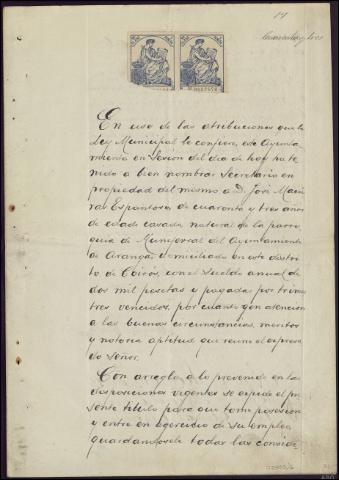 19
Cuarenta y tres
En uso de las atribuciones que la
Ley Municipal le confiere, este Ayunta
miento en sesion del dia de hoy ha te
nido a bien nombrar Secretario en
propiedad del mismo a D. José
ras Espantoso de cuarenta y tres años
de edad casado natural de la parro
quia de Muniferral del Ayuntamiento
de Aranga, domiciliado en este distri
to de Coirós, con el sueldo anual de
dos mil pesetas y pagadas por trimes
tres vencidos, por cuanto y en atencion
a las buenas circunstancias, meritos
y notoria aptitud que reune el expresa
do Señor.
Con arreglo a lo prevenido en las
disposiciones vigentes se expide el pre
sente titulo para que tome posesion
y entre en egercicio de su empleo
guardandosele todas las conside